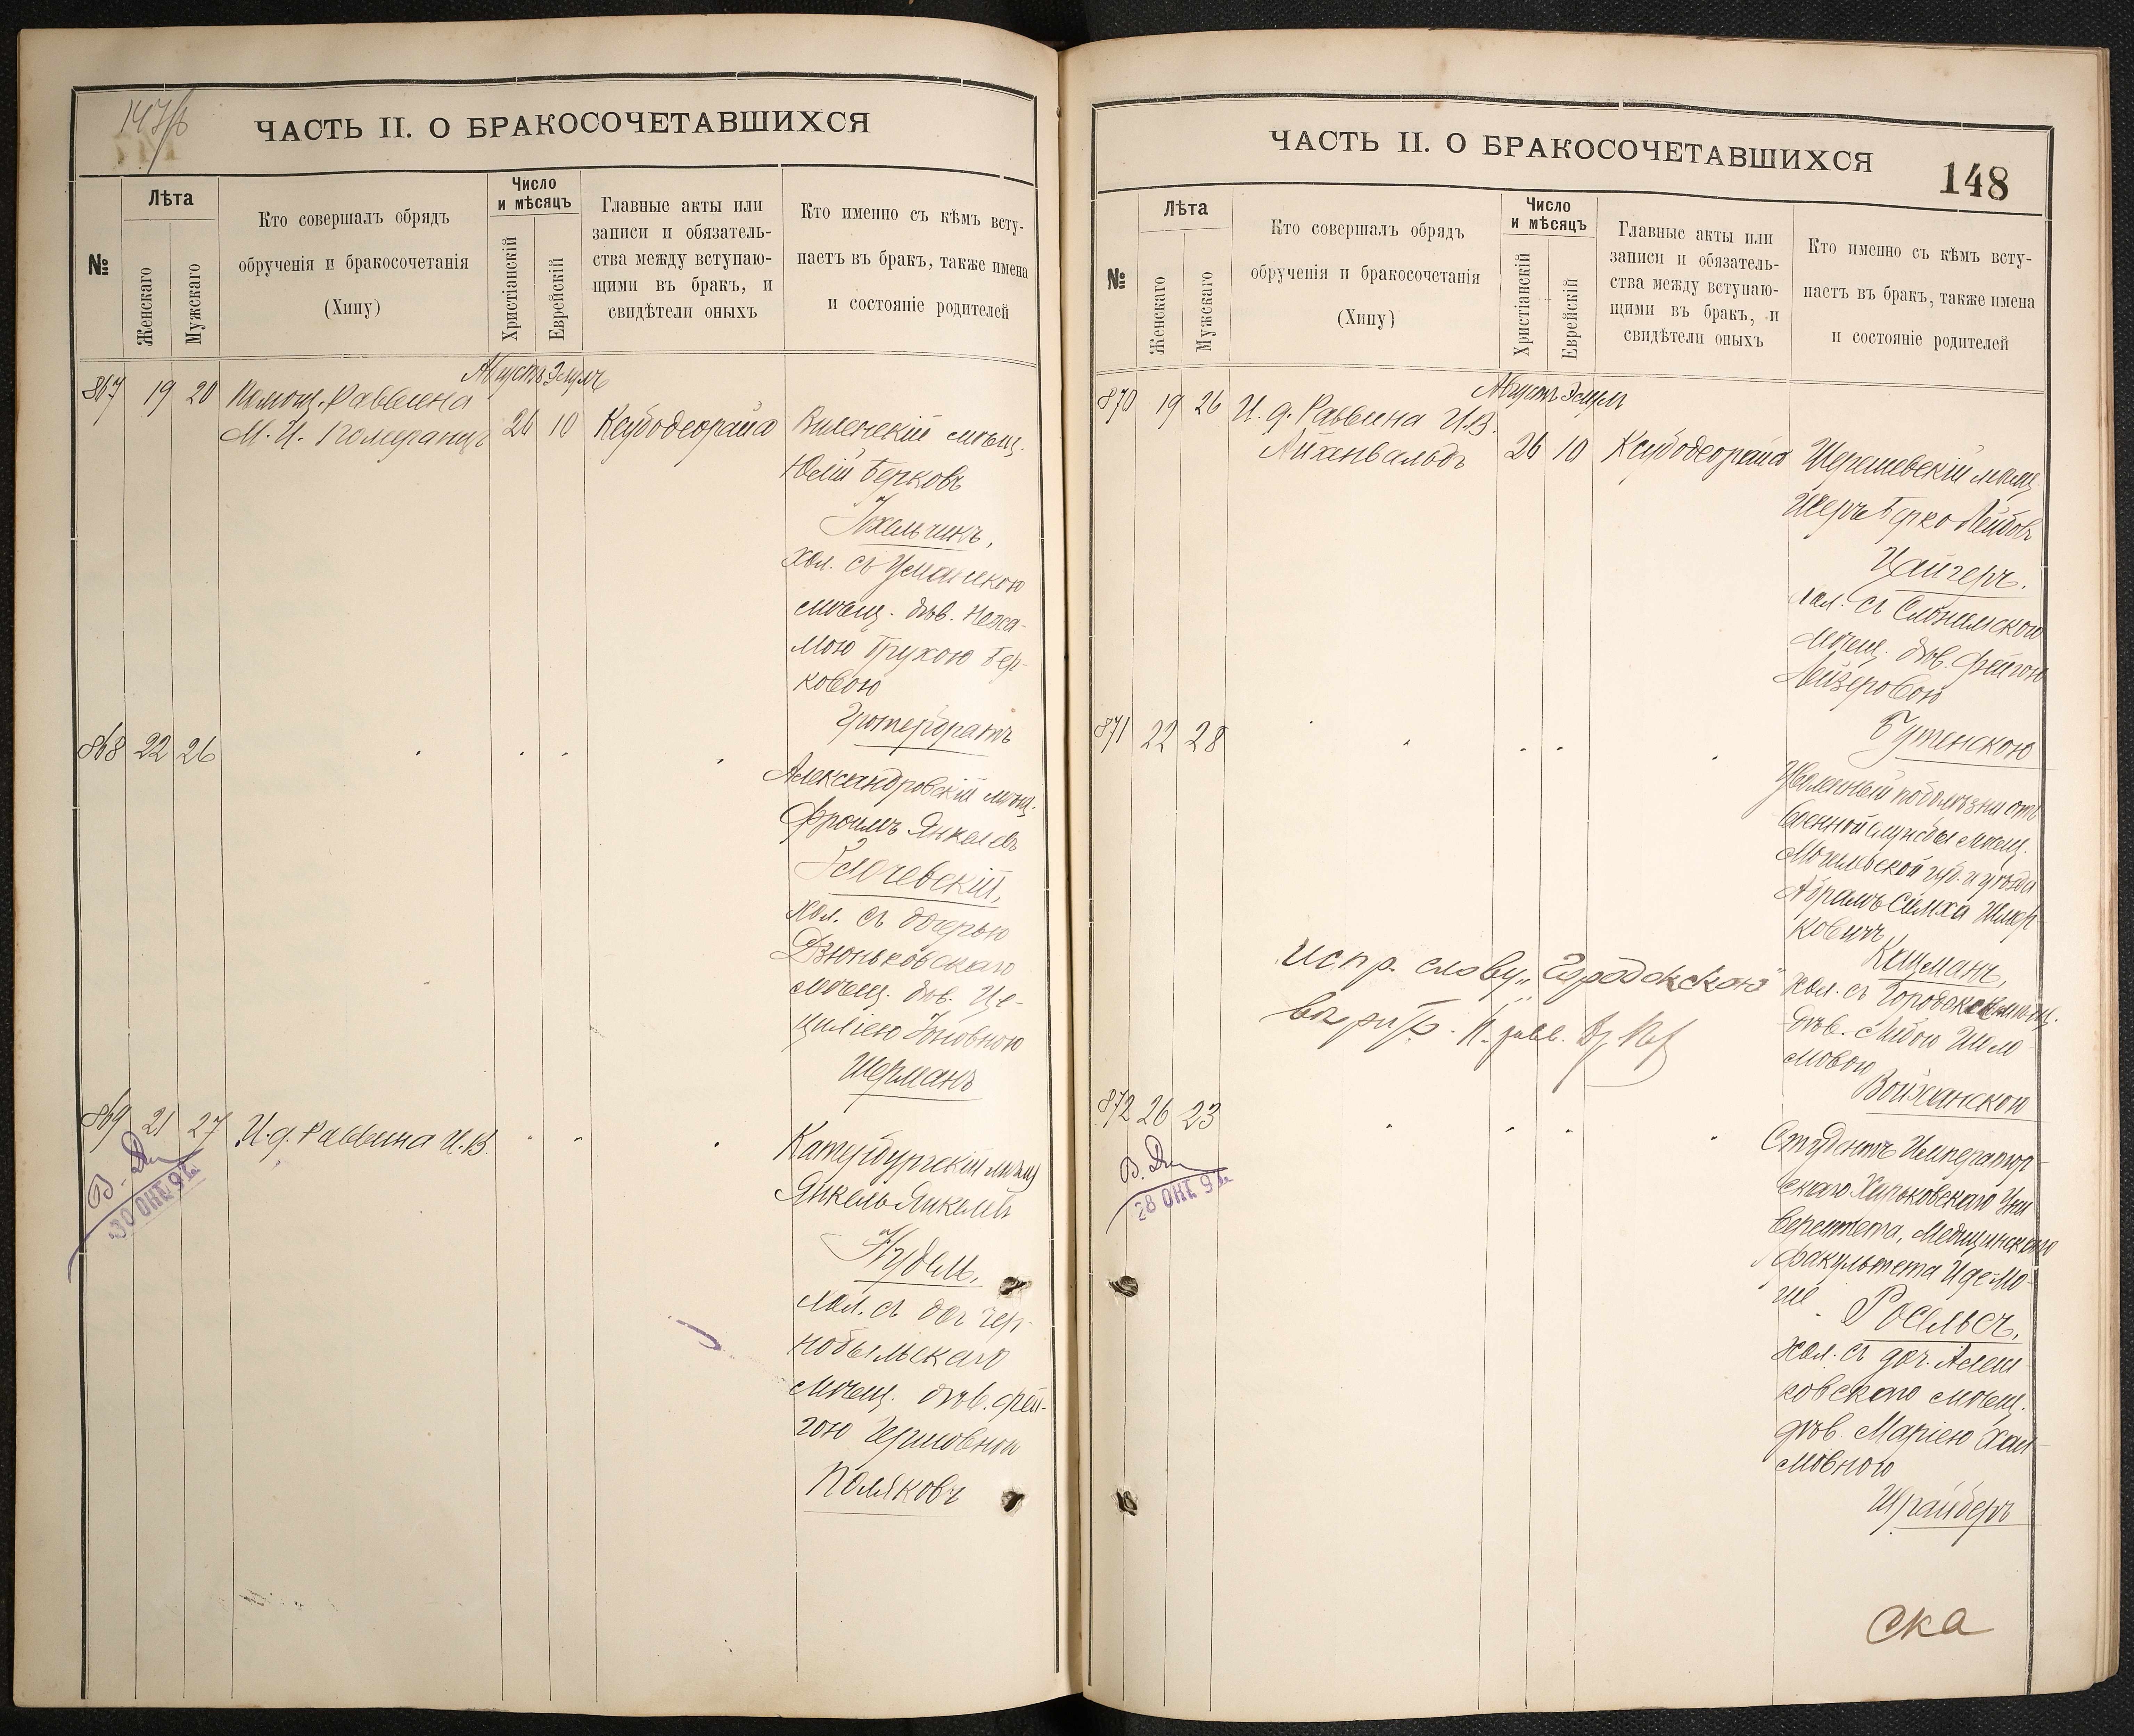 147/б
ЧАСТЬ II. О БРАКОСОЧЕТАВШИХСЯ
№
Лѣта
Женскаго
Мужскаго
Кто совершалъ обрядъ
обрученія и бракосочетанія
(Хипу)
Число
и мѣсяцъ
Христіанскій
Еврейскій
Главные акты или
записи и обязатель-
ства между вступаю-
щими въ бракъ, и
свидѣтели оныхъ
Кто именно съ кѣмъ всту-
паетъ въ бракъ, также имена
и состояніе родителей
Августъ Элулъ
867 19 20 Помощ. Раввина
М. И. Померанцъ 26 10 Ксубодеорайа Виленскій мѣщ.
Юлій Берковъ
хол. съ Уманскою
мѣщ. дѣв. Неха-
мою Брухою Бер-
ковою
868 22 26
Александровскій мѣщ.
Фроимъ Янкелевъ
хол. съ дочерью
Дзюньковскаго
мѣщ. дѣв. Це-
циліею
Шерманъ
869 21 27 И. д. Раввина И. В.
30 ОКТ 91
Катербургскій мѣщ
Янкель Янкелевъ
Нудель,
хол. съ доч Чер-
нобыльскаго
мѣщ. дѣв. Фей-
гою Гершовной
Поляковъ
ЧАСТЬ II. О БРАКОСОЧЕТАВШИХСЯ
148
№
Лѣта
Женскаго
Мужскаго
Кто совершалъ обрядъ
обрученія и бракосочетанія
(Хипу)
Число
и мѣсяцъ
Христіанскій
Еврейскій
Главные акты или
записи и обязатель-
ства между вступаю-
щими въ бракъ, и
свидѣтели оныхъ
Кто именно съ кѣмъ всту-
паетъ въ бракъ, также имена
и состояніе родителей
Августъ Элулъ
870 19 26 И. д. Раввина И. В.
Айхенвальдъ 26 10 Ксубодеорайа Шерешевскій мѣщ.
Берко Лейбовъ
Цайгеръ.
хол. съ Слонимскою
мѣщ. дѣв. Фейгою
Лейзеровою
Бутенскою
871 22 28
Уволенный по болѣзни отъ
военной службы мѣщ.
Могилевской губ. и уѣзда
Абрамъ Симха
Кацманъ,
хол. с
дѣв. Либою Шле
мовою
Войханскою
испр. слову „Городокскою"
872 26 23
В. Дм
28 ОКТ 91
Студентъ Император-
скаго Харьковскаго Уни
верситета, Медицинскаго
факультета Иде-Мо-
ше
хол. съ доч. Алеш
ковскаго мѣщ.
дѣв. Маріею Хаи
мовною
Шрайберъ
ска